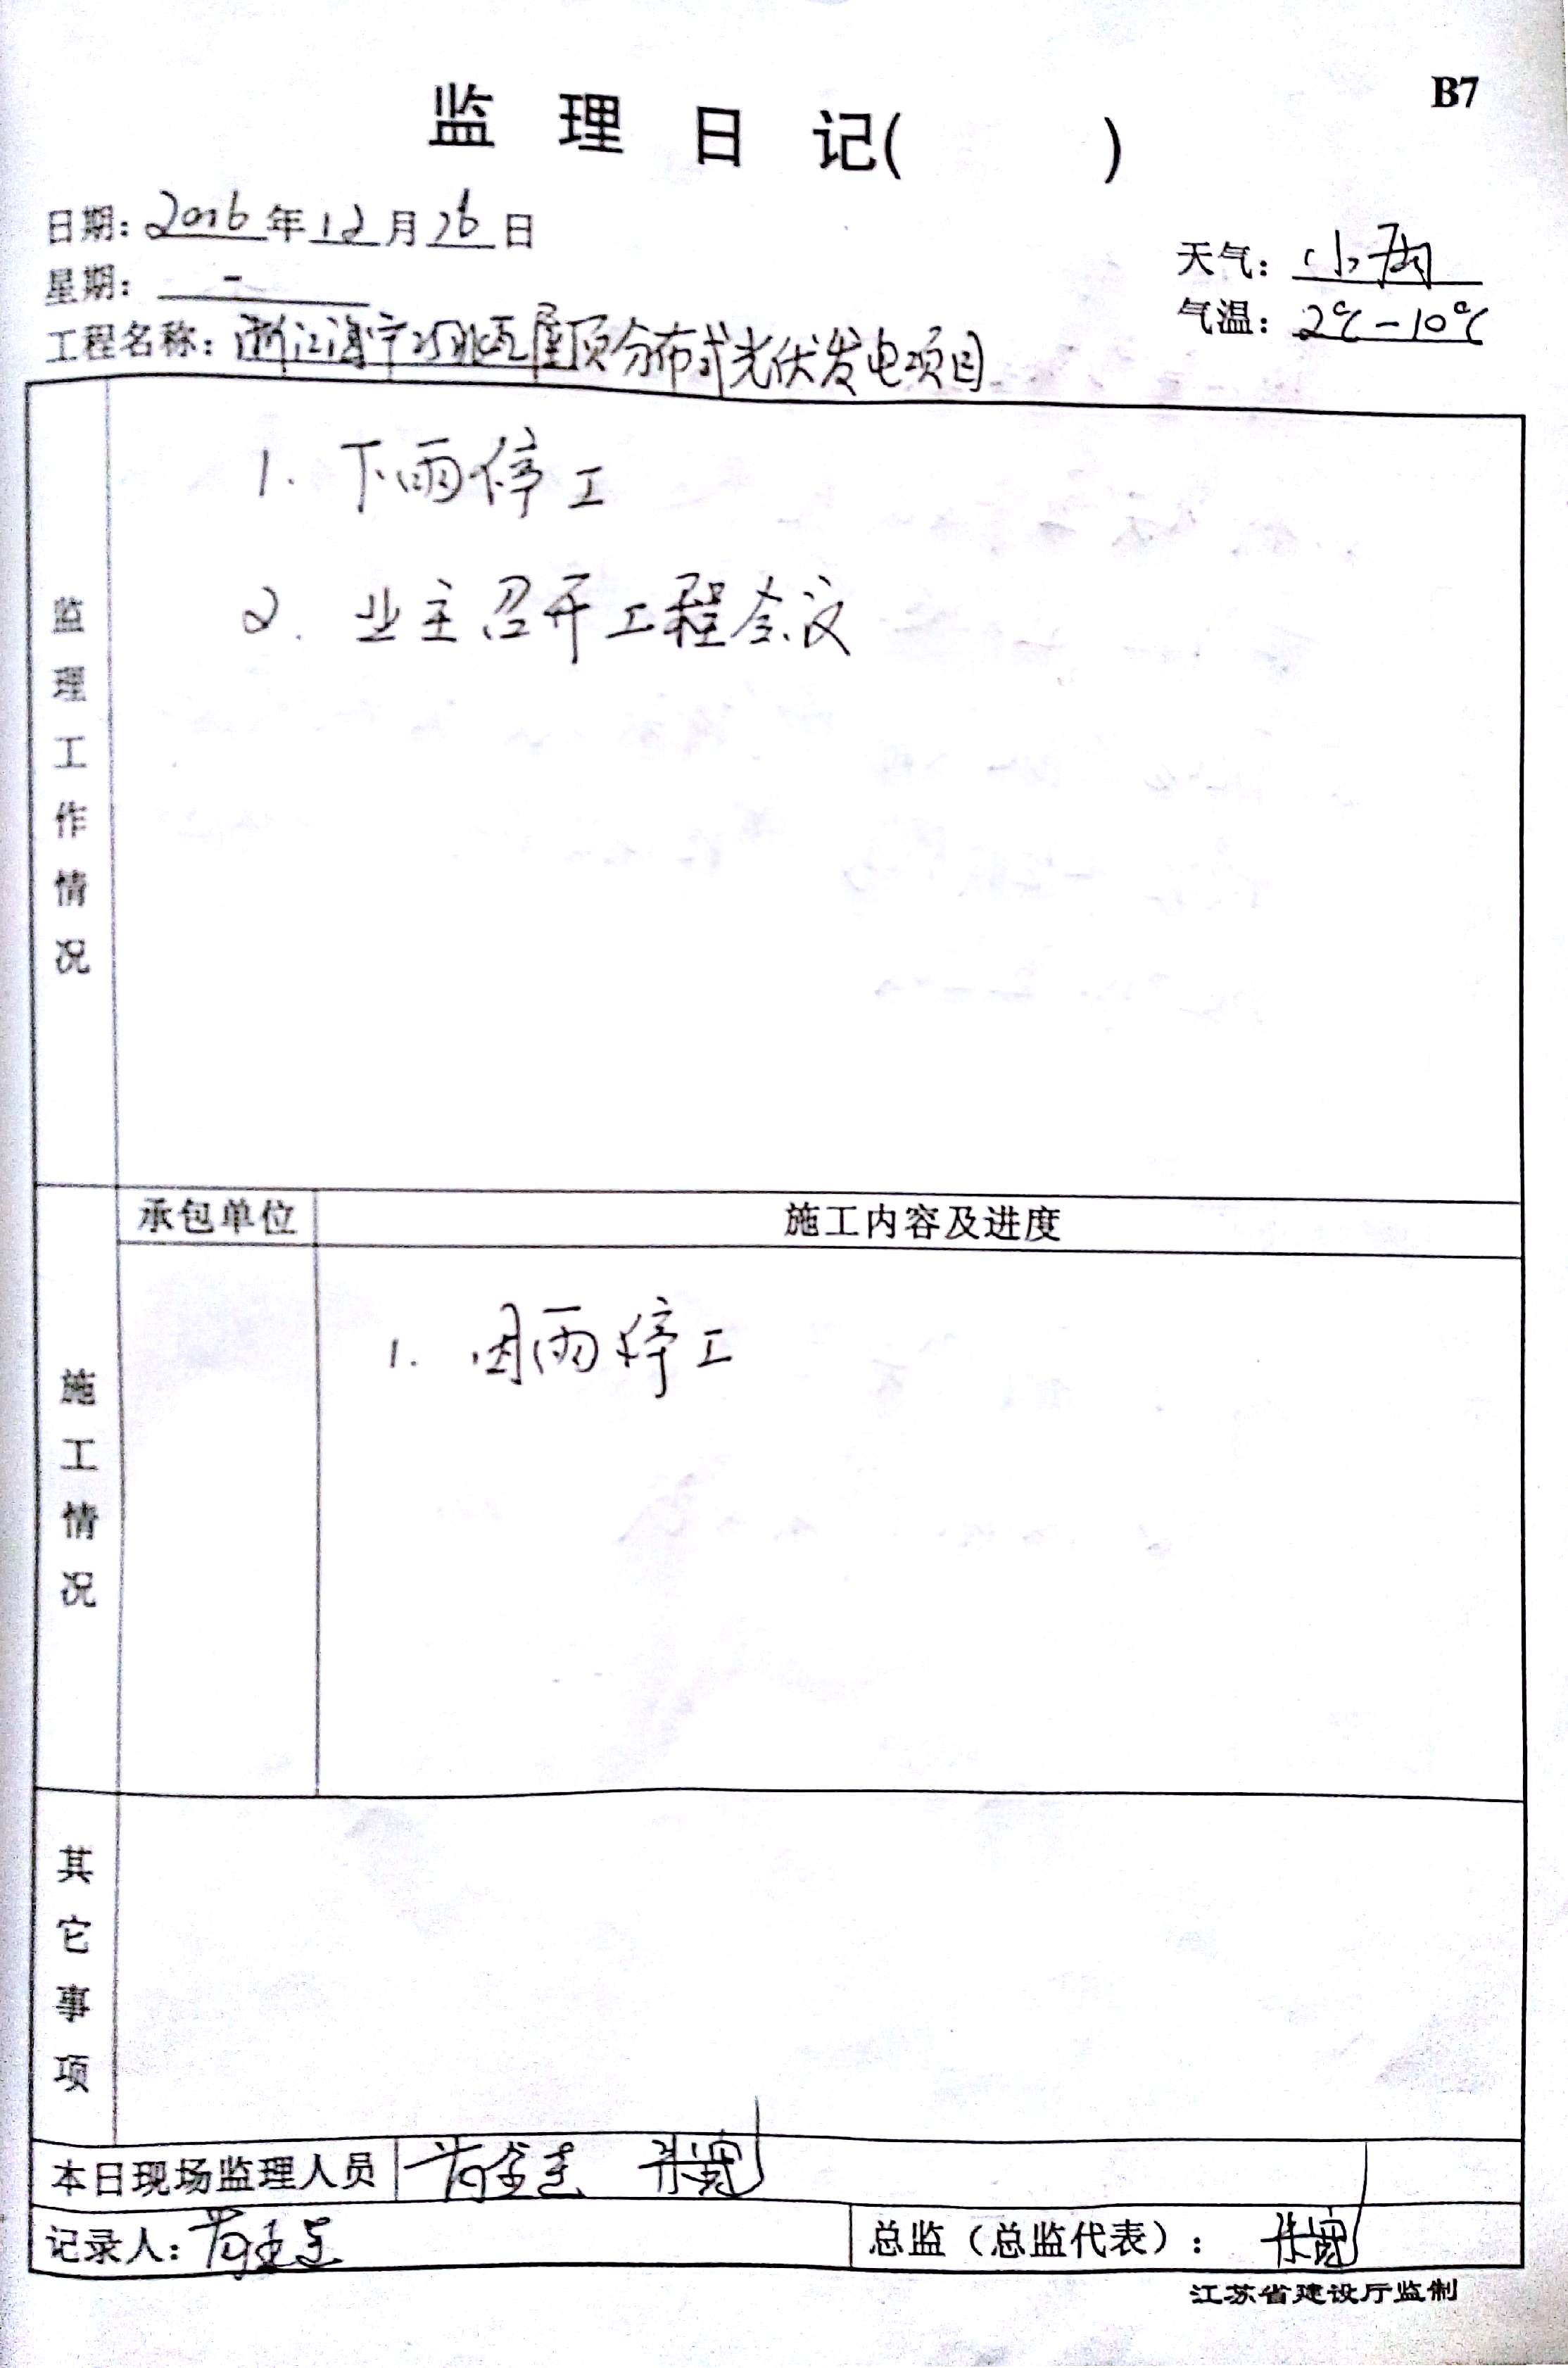 B7
监 理 日 记(          )
日期: 2016 年 12 月 26 日
天气: 小雨
星期: 一
气温: 2℃-10℃
工程名称: 浙江海宁 屋顶分布式光伏发电项目
监理工作情况
1. 下雨停工
2. 业主召开工程会议
承包单位 施工内容及进度
施工情况
1. 因雨停工
其它事项
本日现场监理人员
记录人:
总监（总监代表）:
江苏省建设厅监制